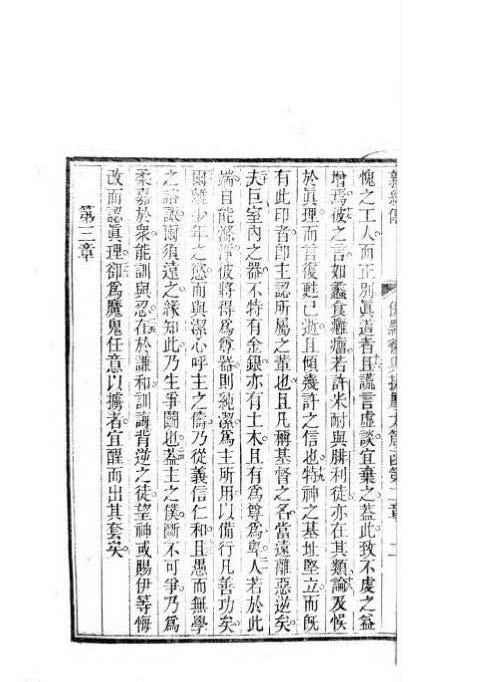 愧之工人而正別眞道者且謊言虛談宜棄之葢此致不虔之益
增焉彼之言如蠹食癰瘤若許米耐與腓利徒亦在其類論及悞
於眞理而言復甦已逝且傾幾許之信也特神之基址堅立而旣
有此印者卽主認所屬之輩也且凡稱基督之名當遠離惡逆矣
夫巨室內之器不特有金銀亦有土木且有爲尊爲卑人若於此
端自能滌淨彼將得爲尊器則純潔爲主所用以備行凡善功矣
爾離少年之慾而與潔心呼主之儔乃從義信仁和且愚而無學
之詰 爾須遠之緣知此乃生爭鬪也葢主之僕斷不可爭乃爲
柔嘉於衆能訓與忍在於謙和訓誨背逆之徒望神或賜伊等悔
改而認眞理卻爲魔鬼任意以擄者宜醒而出其套矣
第三章